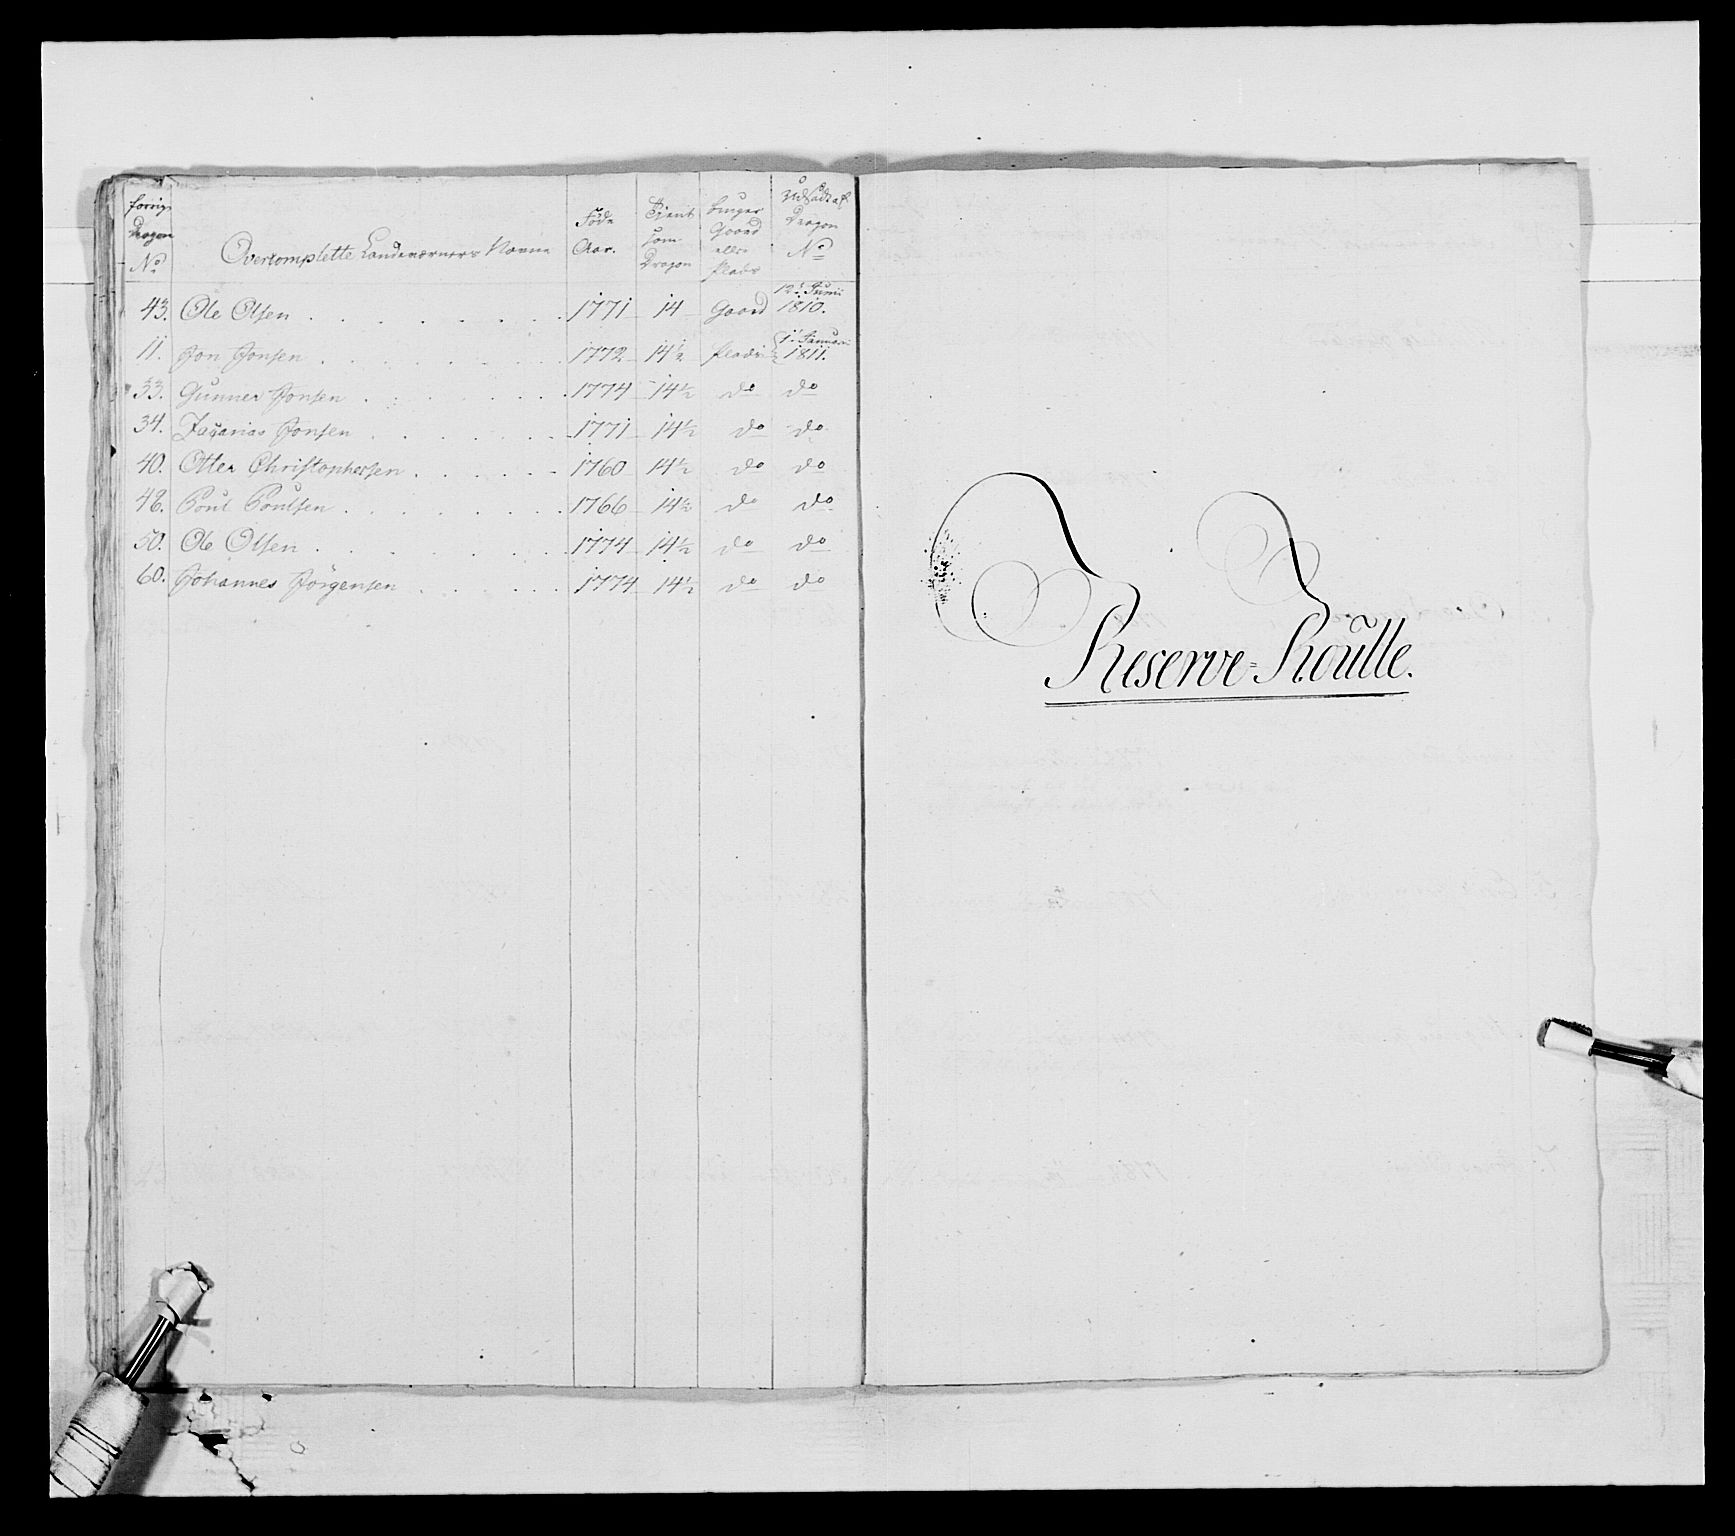 forrige Dragon No | Overcomplette Landeværners Navne | Føde Aar. | Tient som Dragon | bruger Gaard eller Plads | Udsadt af Dragon No
43. Ole Olsen | 1771 | 14 | Gaard | 12te Junii 1810.
11. Jon Jonsen | 1772 | 14½ | Plads | 1te Januari 1811.
33. Gunner Jonsen | 1774 | 14½ | do | do
34. Zacarias Jonsen | 1771 | 14½ | do | do
40. Otter Christophersen | 1760 | 14½ | do | do
48. Poul Poulsen | 1766 | 14½ | do | do
50. Ole Olsen | 1774 | 14½ | do | do
60. Johannes Jörgensen | 1774 | 14½ | do | do
Reserve=Roulle.